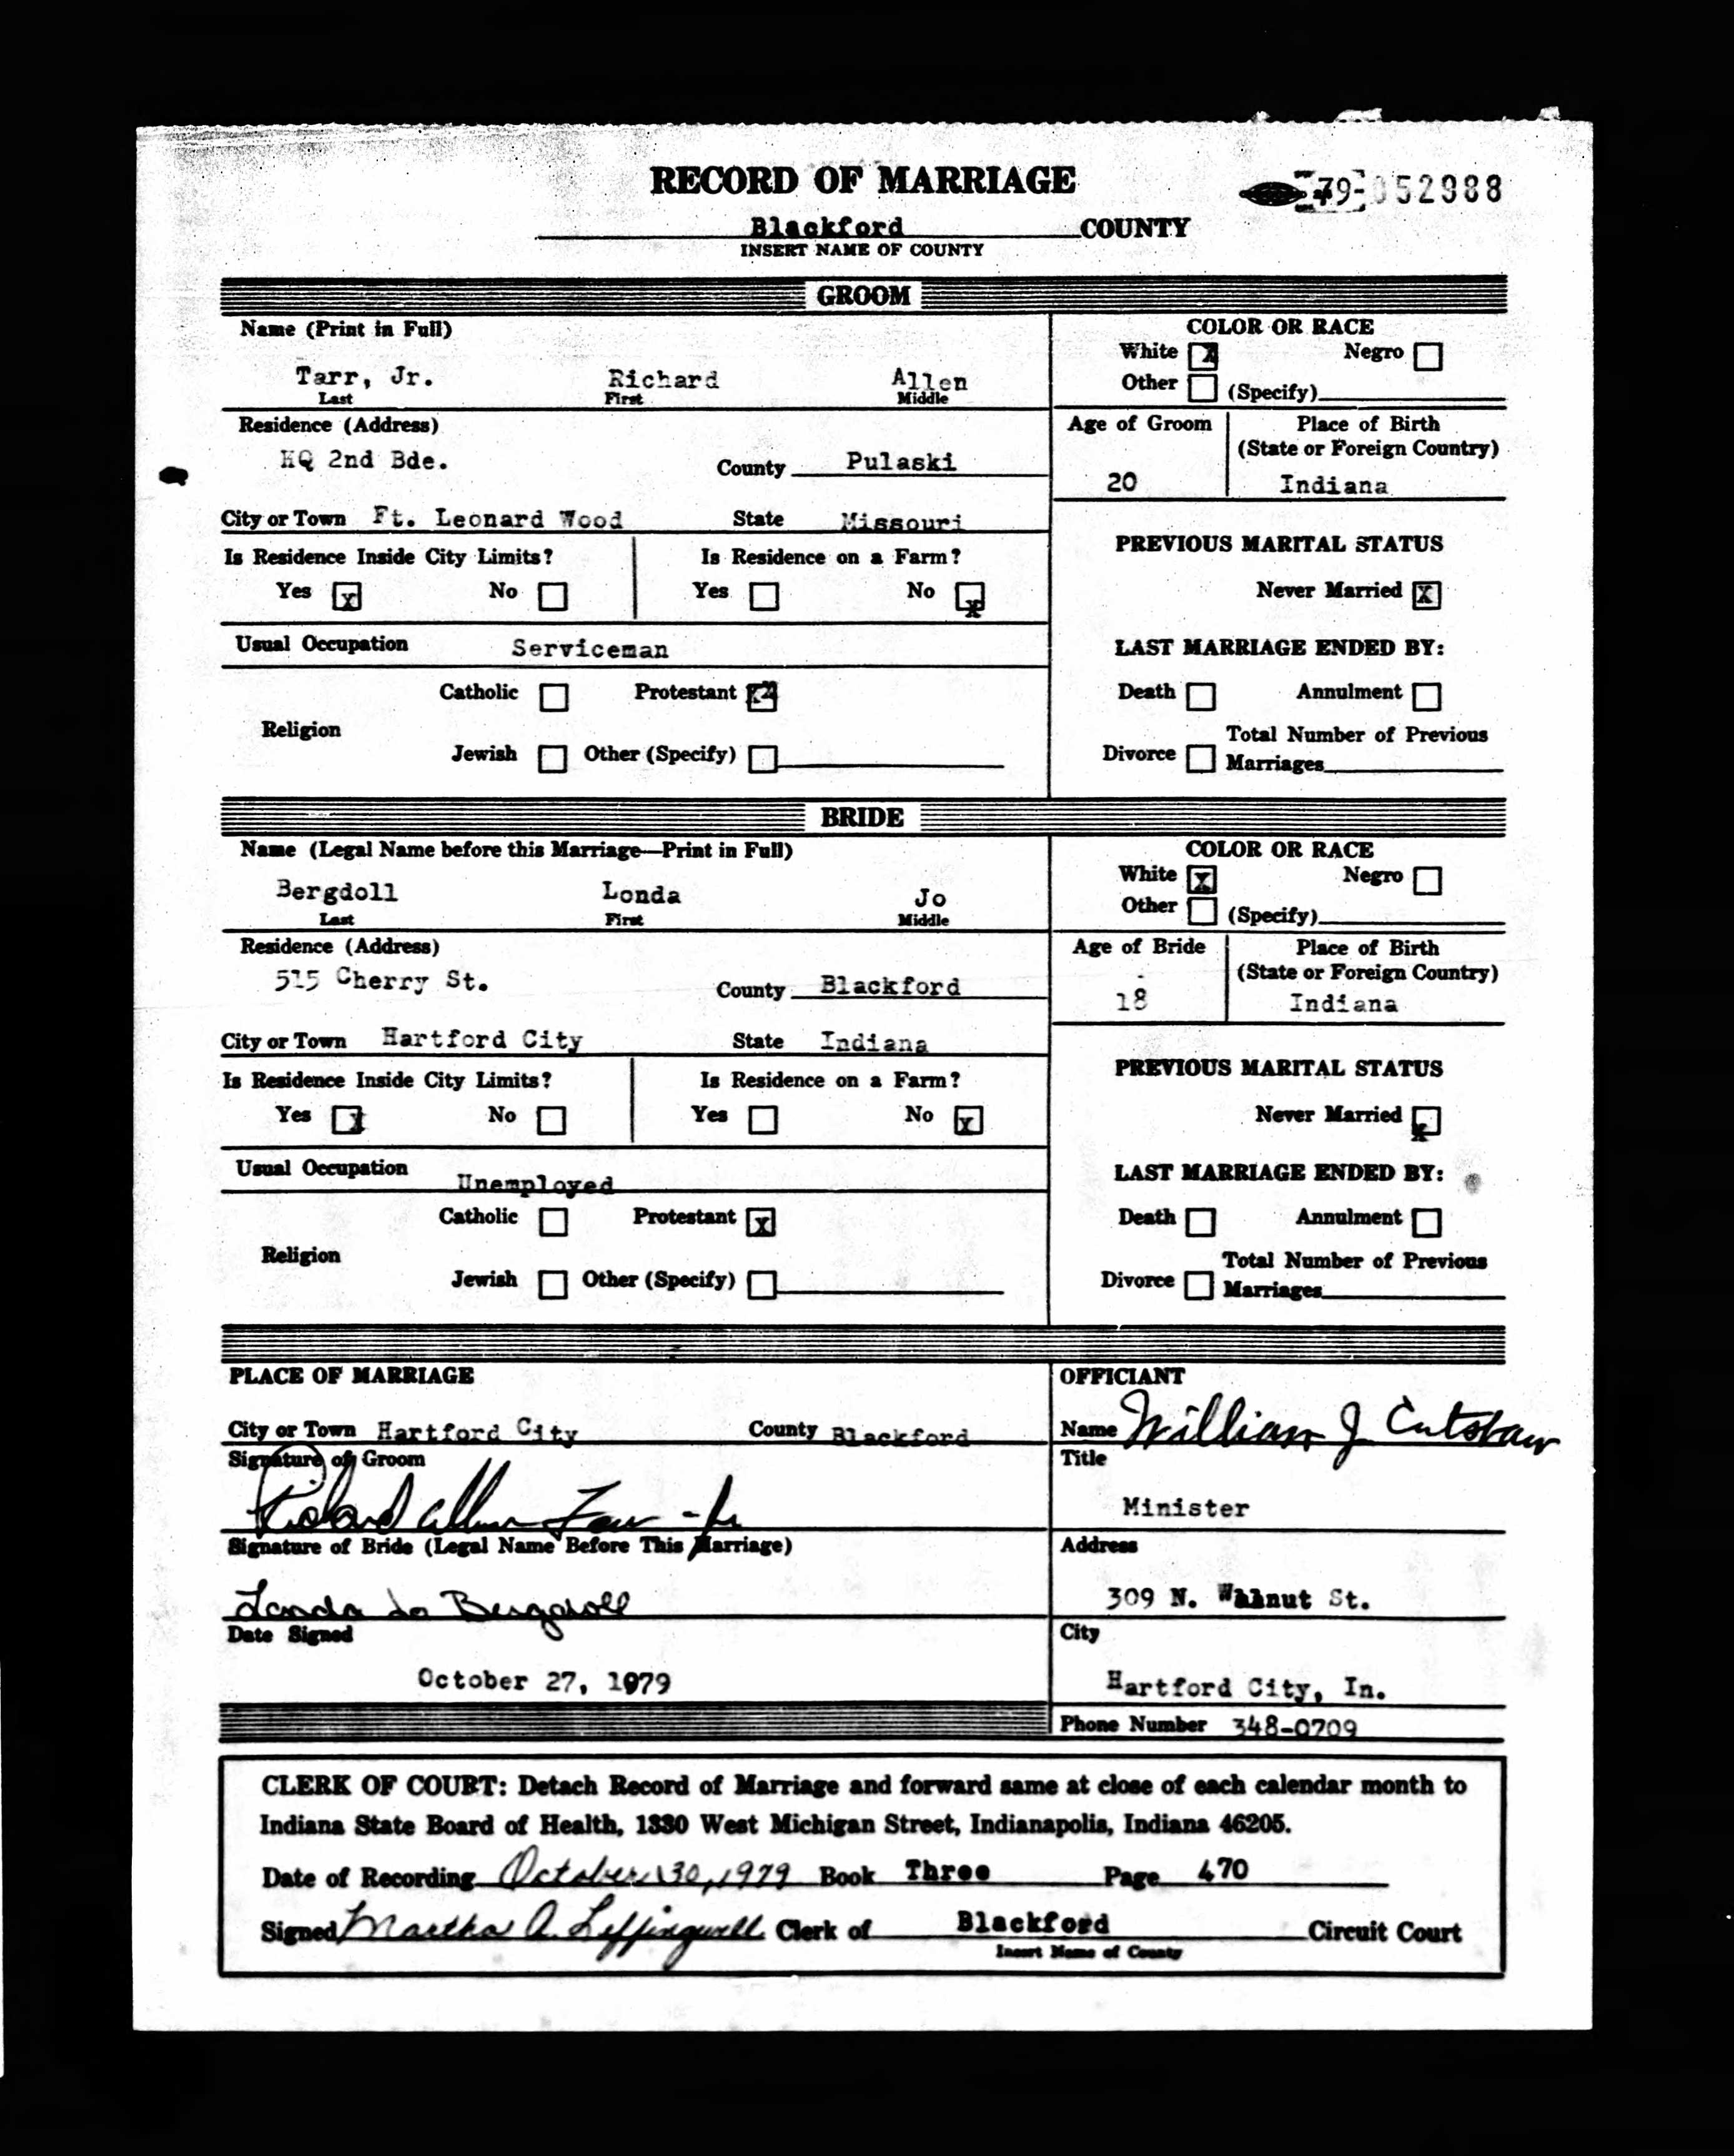 RECORD OF MARRIAGE
79-052988
Blackford COUNTY
INSERT NAME OF COUNTY
GROOM
Name (Print in Full)
Tarr, Jr. Richard Allen
Last First Middle
COLOR OR RACE
White X Negro
Other (Specify)
Residence (Address)
HQ 2nd Bde. County Pulaski
Age of Groom Place of Birth
(State or Foreign Country)
20 Indiana
City or Town Ft. Leonard Wood State Missouri
Is Residence Inside City Limits? Is Residence on a Farm?
Yes x No Yes No x
PREVIOUS MARITAL STATUS
Never Married X
Usual Occupation Serviceman
LAST MARRIAGE ENDED BY:
Catholic Protestant x
Religion
Jewish Other (Specify)
Death Annulment
Total Number of Previous
Divorce Marriages
BRIDE
Name (Legal Name before this Marriage—Print in Full)
Bergdoll Londa Jo
Last First Middle
COLOR OR RACE
White x Negro
Other (Specify)
Residence (Address)
515 Cherry St. County Blackford
Age of Bride Place of Birth
(State or Foreign Country)
18 Indiana
City or Town Hartford City State Indiana
Is Residence Inside City Limits? Is Residence on a Farm?
Yes x No Yes No x
PREVIOUS MARITAL STATUS
Never Married x
Usual Occupation Unemployed
LAST MARRIAGE ENDED BY:
Catholic Protestant x
Religion
Jewish Other (Specify)
Death Annulment
Total Number of Previous
Divorce Marriages
PLACE OF MARRIAGE
City or Town Hartford City County Blackford
Signature of Groom
Richard Allen Tarr - Jr
Signature of Bride (Legal Name Before This Marriage)
Londa Jo Bergdoll
Date Signed
October 27, 1979
OFFICIANT
Name William J Cutshaw
Title
Minister
Address
309 N. Walnut St.
City
Hartford City, In.
Phone Number 348-0709
CLERK OF COURT: Detach Record of Marriage and forward same at close of each calendar month to
Indiana State Board of Health, 1330 West Michigan Street, Indianapolis, Indiana 46205.
Date of Recording October 30, 1979 Book Three Page 470
Signed Martha A. Leffingwell Clerk of Blackford Circuit Court
Insert Name of County